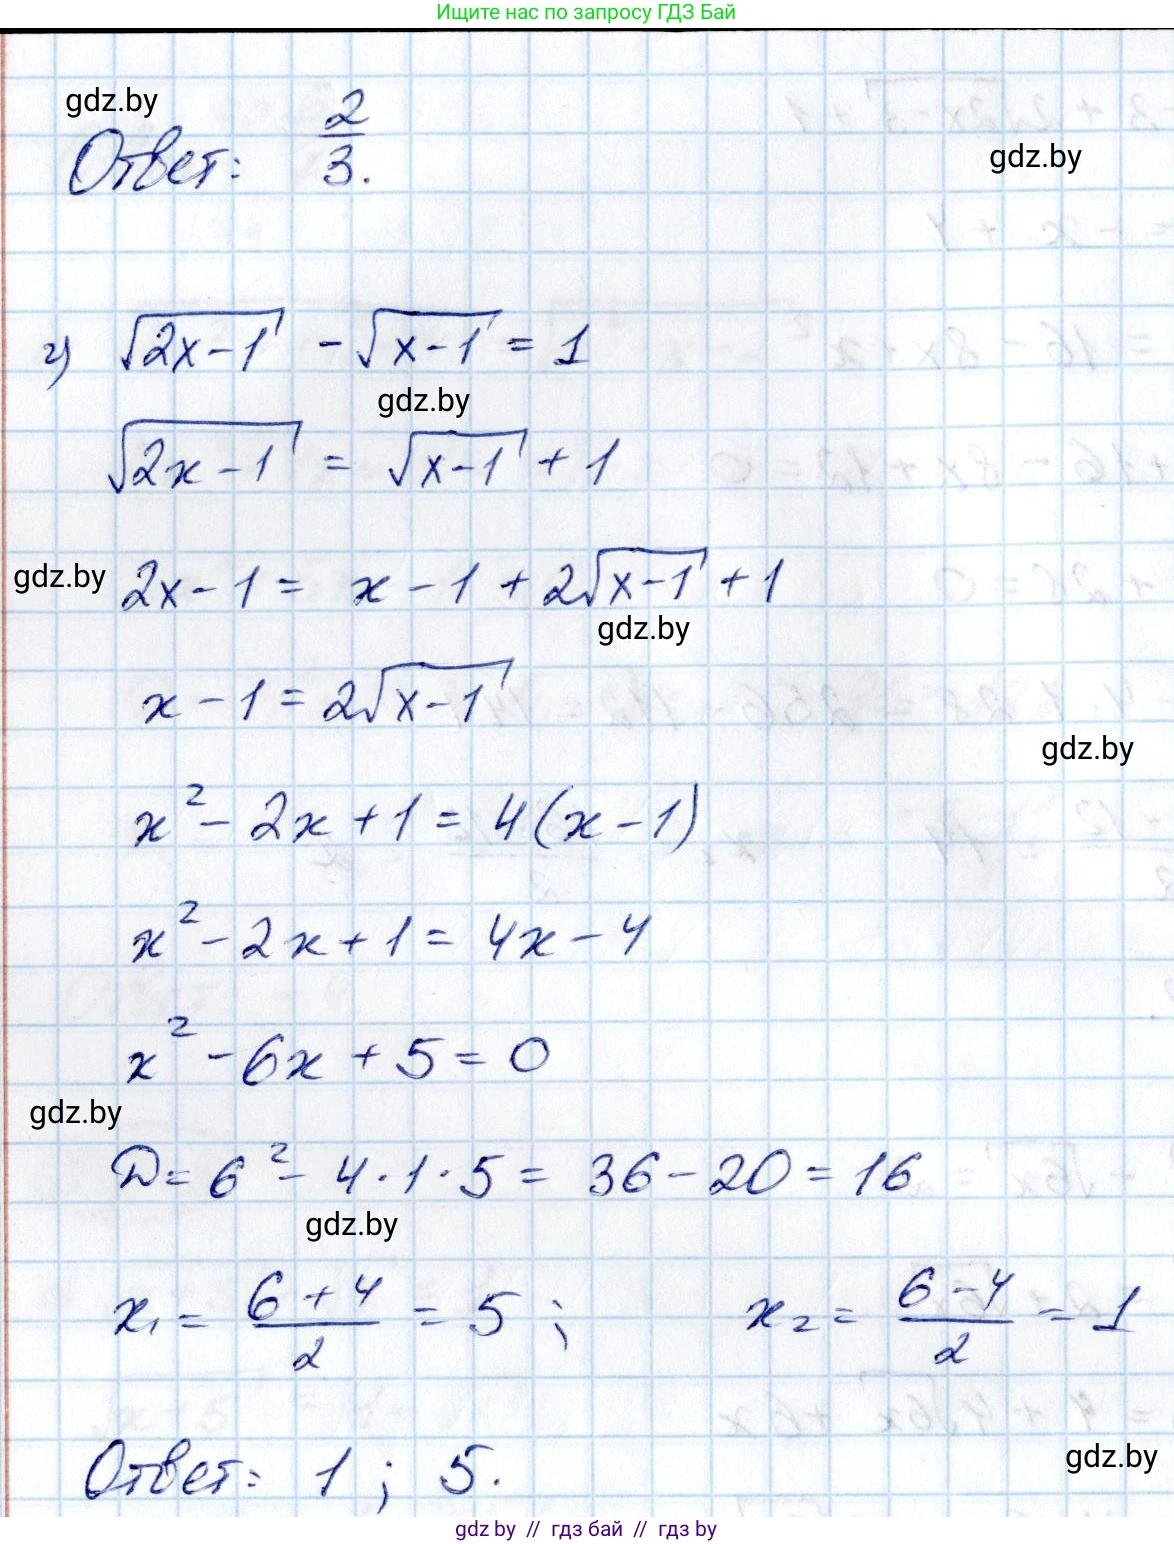 Ищите нас по запросу ГДЗ Бай
gdz.by
Ответ: 2/3.
gdz.by
г) √(2x-1) - √(x-1) = 1
gdz.by
√(2x-1) = √(x-1) + 1
gdz.by
2x-1 = x-1+2√(x-1)+1
gdz.by
x-1 = 2√(x-1)
gdz.by
x² - 2x + 1 = 4(x-1)
x² - 2x + 1 = 4x - 4
x² - 6x + 5 = 0
gdz.by
D = 6² - 4·1·5 = 36 - 20 = 16
gdz.by
x₁ = (6+4)/2 = 5; x₂ = (6-4)/2 = 1
Ответ: 1; 5.
gdz.by
gdz by // гдз бай // гдз by